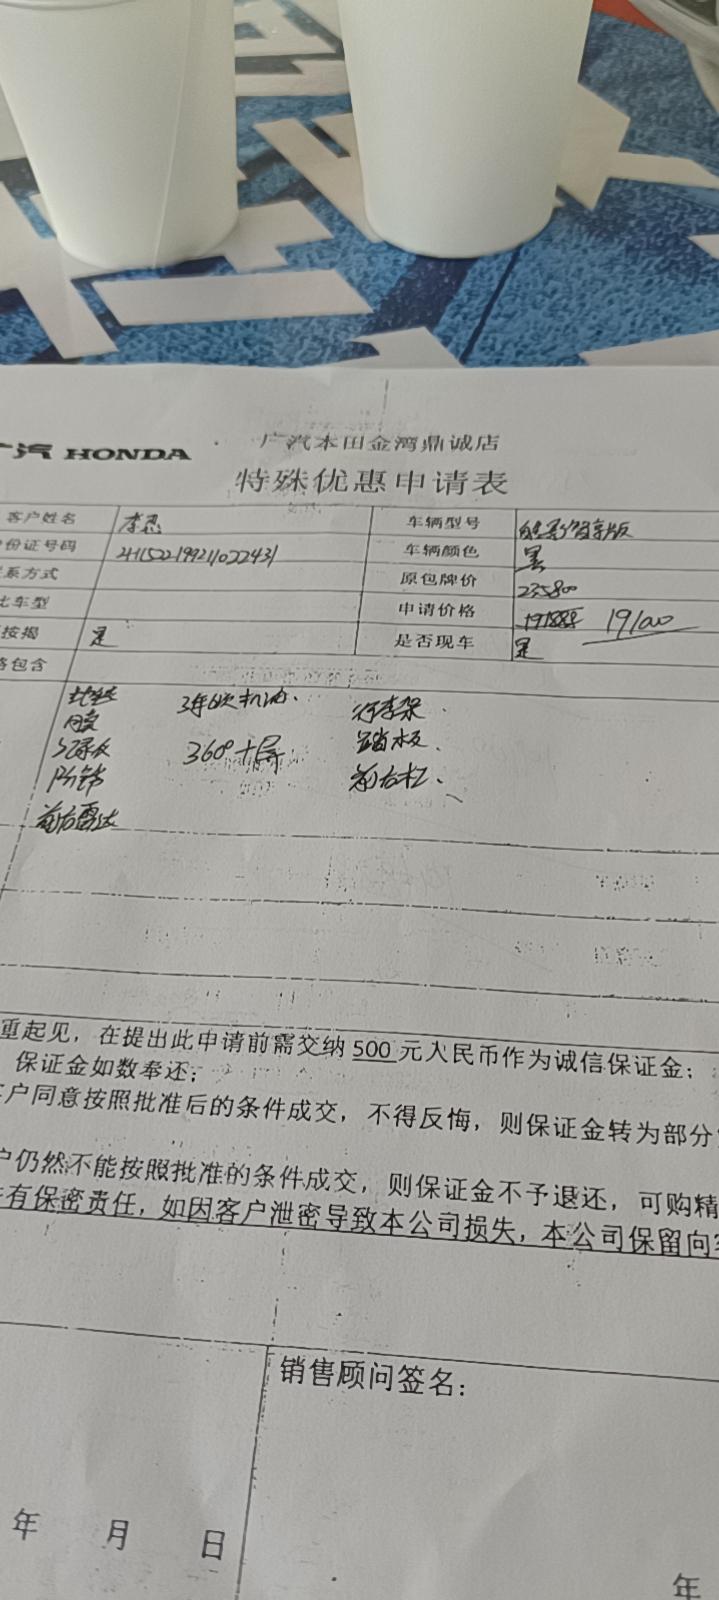 广汽 HONDA
广汽本田金湾鼎诚店
特殊优惠申请表
客户姓名 李忍 车辆型号
份证号码 车辆颜色 黑
系方式 原包牌价 235800
比车型 申请价格 191000
按揭 是 是否现车 是
格包含
3年6次机油、 行李架
360°十屏 踏板、
前后杠、
前后雷达
重起见，在提出此申请前需交纳 500 元人民币作为诚信保证金；
保证金如数奉还；
客户同意按照批准后的条件成交，不得反悔，则保证金转为部分
户仍然不能按照批准的条件成交，则保证金不予退还，可购精
有保密责任，如因客户泄密导致本公司损失，本公司保留向
销售顾问签名：
年 月 日
年